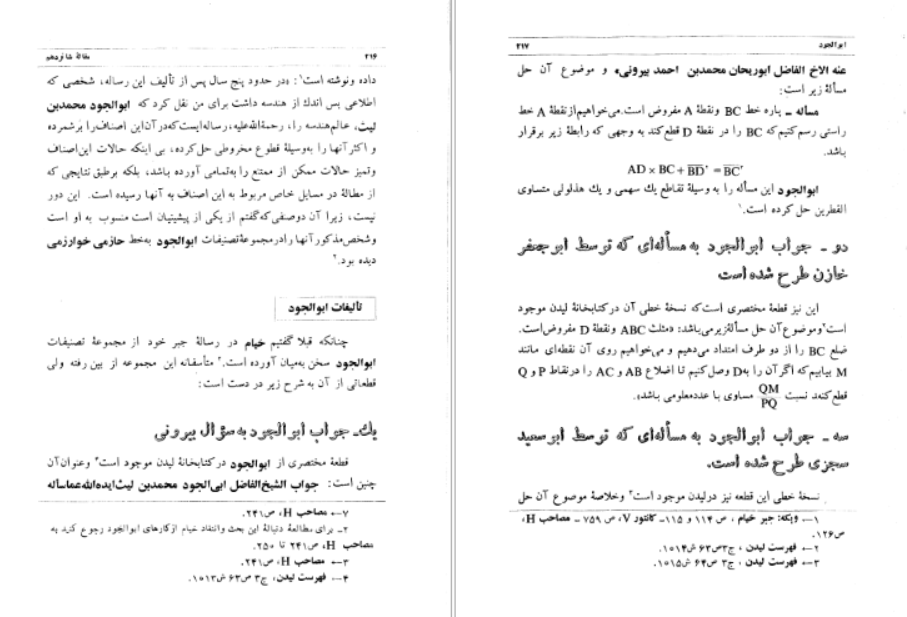 ۲۱۶
مقالهٔ شانزدهم
داده ونوشته است۱: «در حدود پنج سال پس از تألیف این رساله، شخصی که
اطلاعی بس اندك از هندسه داشت برای من نقل کرد که ابوالجود محمدبن
لیث، عالم‌هندسه را، رحمةالله‌علیه، رساله‌ایست‌که‌در‌آن‌این اصناف‌را برشمرده
و اکثر آنها را به‌وسیلهٔ قطوع مخروطی حل‌کرده، بی اینکه حالات این‌اصناف
وتمیز حالات ممکن از ممتنع را به‌تمامی آورده باشد، بلکه برطبق نتایجی که
از مطالهٔ در مسایل خاص مربوط به این اصناف به آنها رسیده است. این دور
نیست، زیرا آن دوصنفی‌که‌گفتم از یکی از پیشینیان است منسوب به او است
وشخص‌مذکور آنها را در مجموعهٔ تصنیفات ابوالجود به‌خط حازمی خوارزمی
دیده بود.۲
تألیفات ابوالجود
چنانکه قبلا گفتیم خیام در رسالهٔ جبر خود از مجموعهٔ تصنیفات
ابوالجود سخن به‌میان آورده است.۳ متأسفانه این مجموعه از بین رفته ولی
قطعاتی از آن به شرح زیر در دست است:
یك ـ جواب ابوالجود به سؤال بیرونی
قطعهٔ مختصری از ابوالجود در کتابخانهٔ لیدن موجود است۴ وعنوان‌آن
چنین است: جواب الشیخ‌الفاضل ابی‌الجود محمدبن لیث‌ایده‌الله‌عماسأله
مصاحب H، ص۲۴۱.
۲ـ برای مطالعهٔ دنبالهٔ این بحث وانتقاد خیام ازکارهای ابوالجود رجوع کنید به
مصاحب H، ص۲۴۱ تا ۲۵۰.
۳ـ← مصاحب H، ص۲۴۱.
۴ـ← فهرست لیدن، ج۳ ص۶۳ ش۱۰۱۳.
ابوالجود
۲۱۷
عنه الاخ الفاضل ابوریحان محمدبن احمد بیرونی» و موضوع آن حل
مسألهٔ زیر است:
مسأله ـ پاره خط BC ونقطهٔ A مفروض است. می‌خواهیم ازنقطهٔ A خط
راستی رسم‌کنیم‌که BC را در نقطهٔ D قطع‌کند به وجهی که رابطهٔ زیر برقرار
باشد.
AD × BC + BD۲ = BC۲
ابوالجود این مسأله را به وسیلهٔ تقاطع یك سهمی و یك هذلولی متساوی
القطرین حل کرده است.۱
دو ـ جواب ابوالجود به مسأله‌ای که توسط ابوجعفر
خازن طرح شده است
این نیز قطعهٔ مختصری است‌که نسخهٔ خطی آن درکتابخانهٔ لیدن موجود
است۲وموضوع آن حل مسألهٔ‌زیرمی‌باشد: «مثلث ABC ونقطهٔ D مفروض‌است.
ضلع BC را از دو طرف امتداد می‌دهیم و می‌خواهیم روی آن نقطه‌ای مانند
M بیابیم که اگر آن را به D وصل‌کنیم تا اضلاع AB و AC را درنقاط P و Q
قطع‌کند نسبت QM/PQ مساوی با عددمعلومی باشد».
سه ـ جواب ابوالجود به مسأله‌ای که توسط ابوسعید
سجزی طرح شده است.
نسخهٔ خطی این قطعه نیز درلیدن موجود است۳ وخلاصهٔ موضوع آن حل
۱ـ← ویکه: جبر خیام، ص ۱۱۴ و ۱۱۵ـ کانتور V، ص ۷۵۹ ـ مصاحب H،
ص۱۲۶.
۲ـ← فهرست لیدن، ج۳ ص۶۳ ش۱۰۱۴.
۳ـ← فهرست لیدن، ج۳ ص۶۴ ش۱۰۱۵.